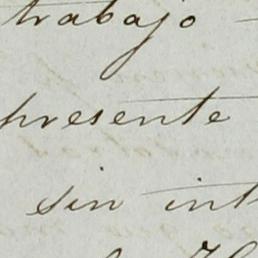 trabajo
presente
sin int